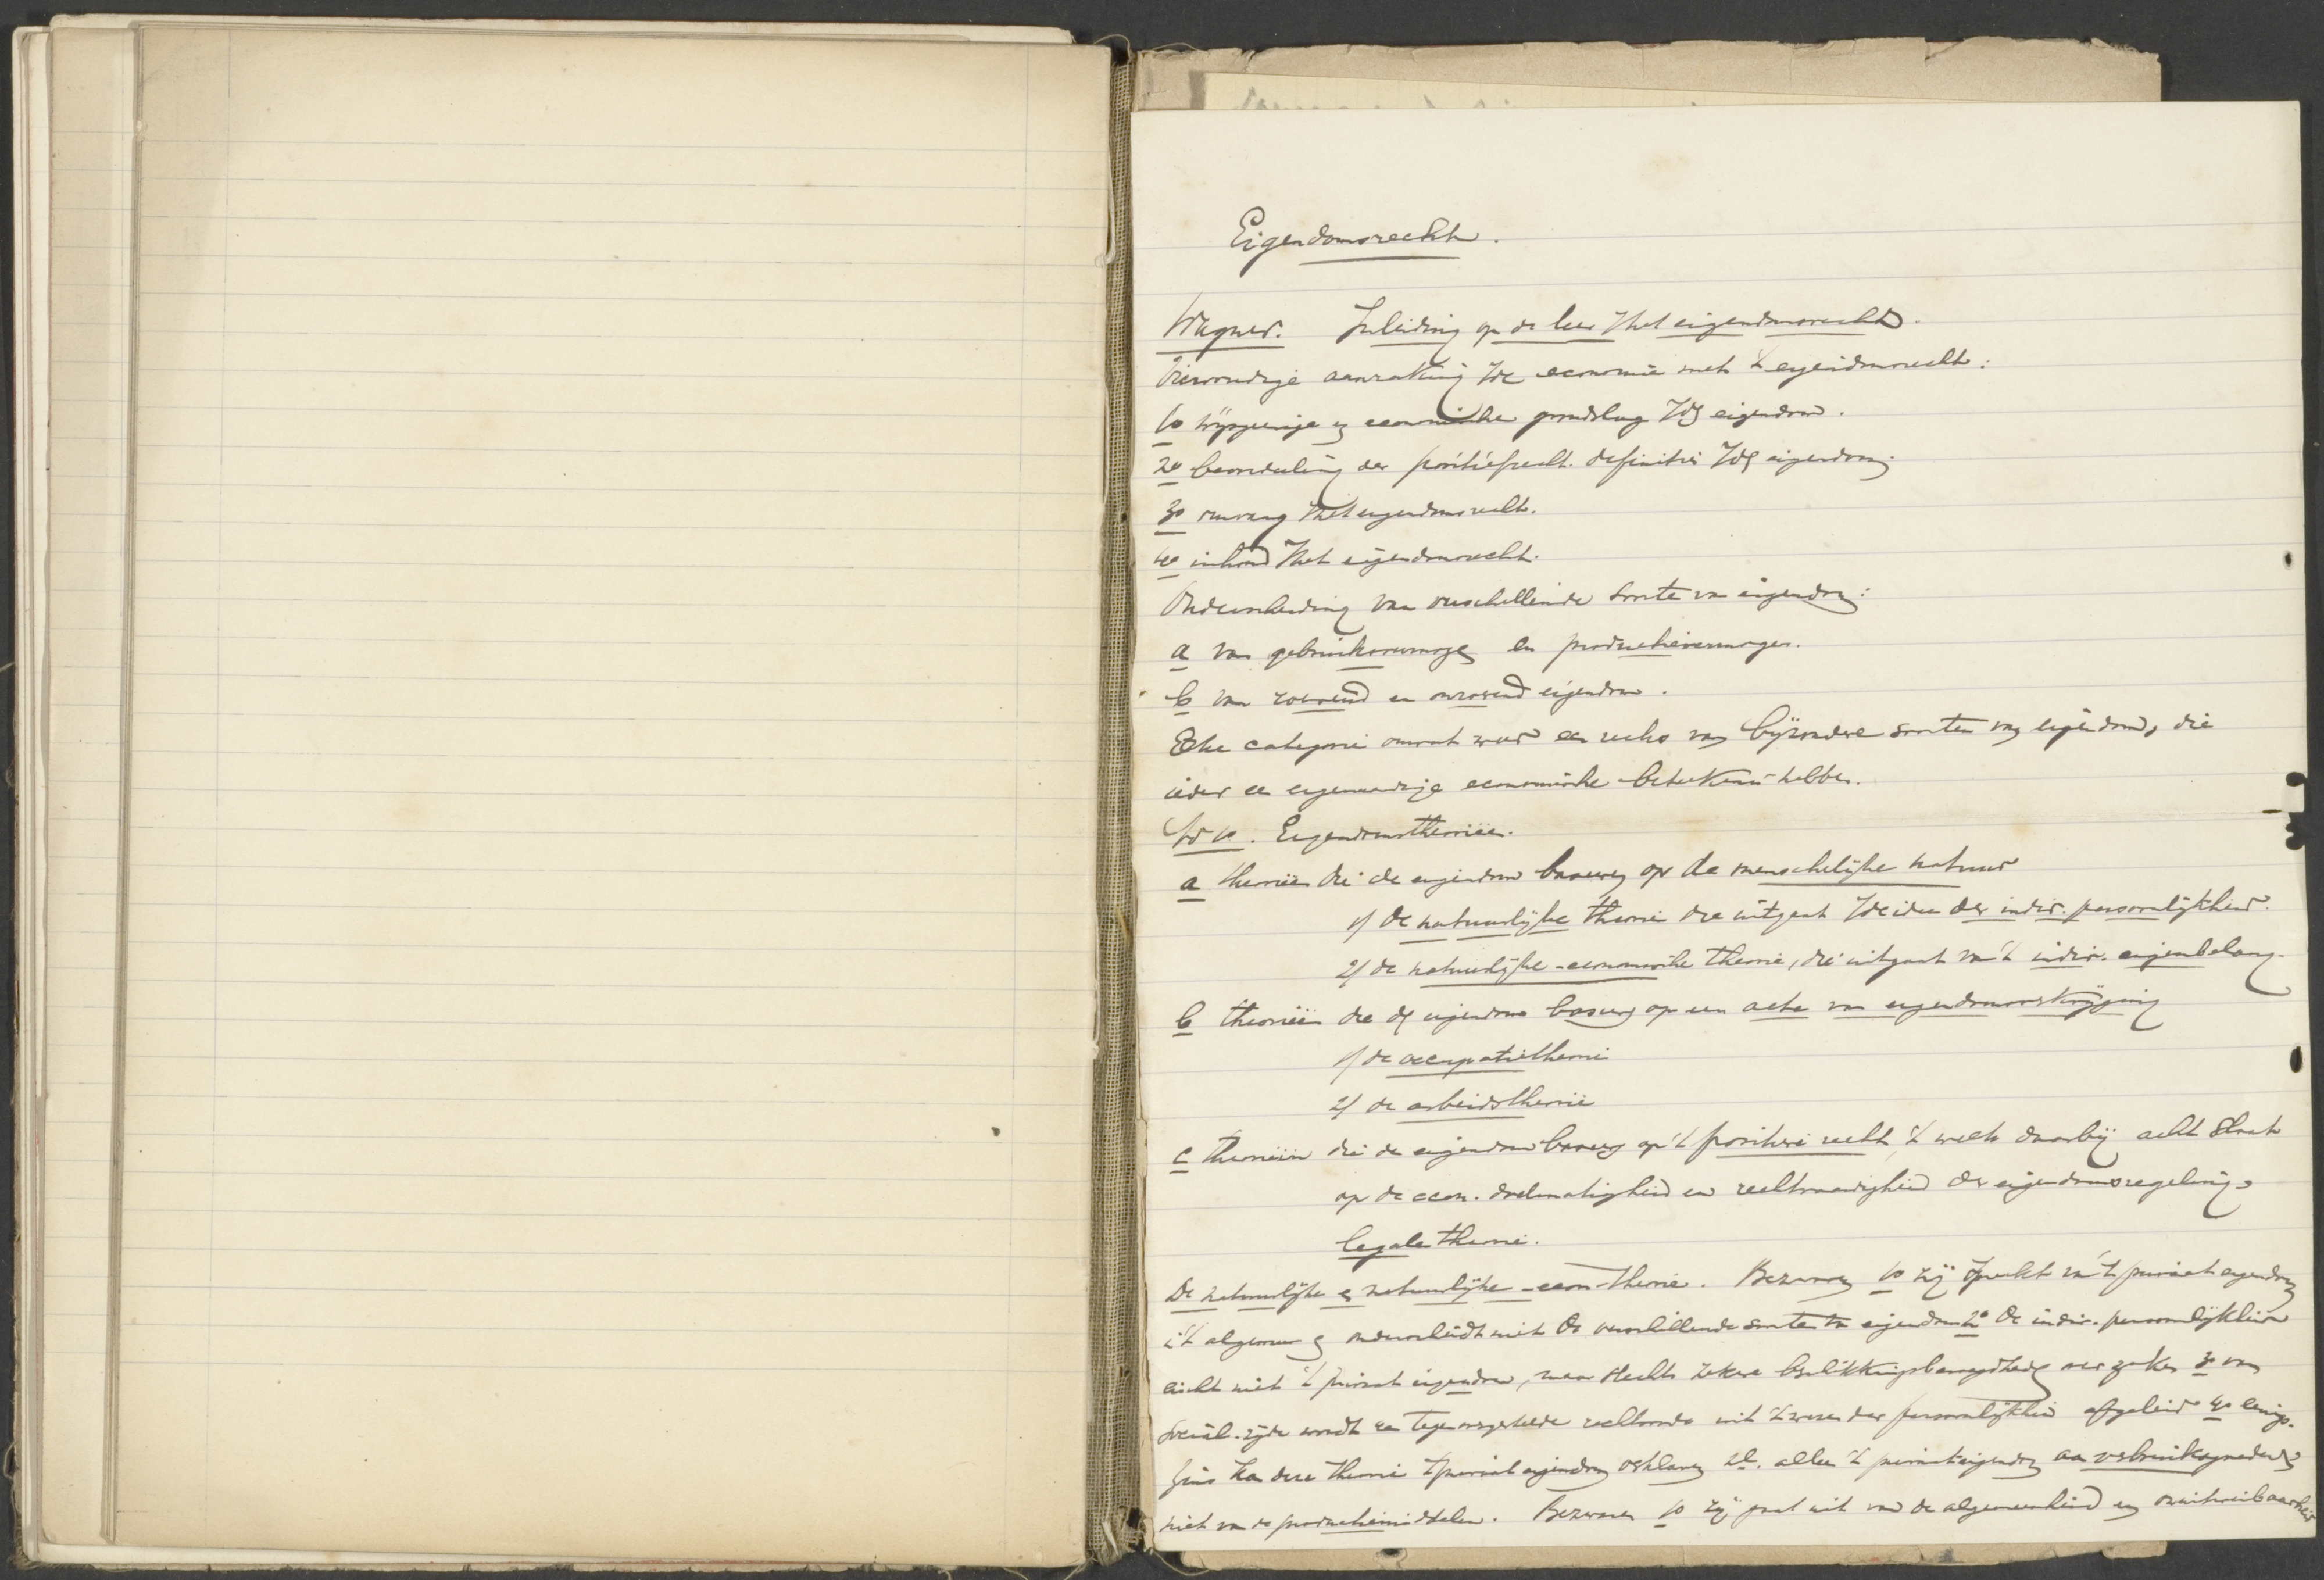 Eigendomsrecht.
Wagner. Inleiding op de leer v/het eigendomsrecht.
Viervoudige aanraking v/de economie met 't eigendomsrecht:
1o wijsgeerige en economische grondslag v/d eigendom.
2o beoordeeling der positiefrecht. definities v/d eigendom;
3o omvang v/het eigendomsrecht.
4o inhoud v/het eigendomsrecht.
Onderscheiding van verschillende soorten van eigendom:
a van gebruiksvermogen en productievermogen.
b van roerend en onroerend eigendom.
Elke categorie omvat weer een reeks van bijzondere soorten van eigendom, die
ieder een eigenaardige economische beteekenis hebben.
Ad 1o. Eigendomstheorieën.
a theorieën die de eigendom baseeren op de menschelijke natuur
1/ de natuurlijke theorie die uitgaat v/de idee der indiv. persoonlijkheid.
2/ de natuurlijke-economische theorie, die uitgaat van 't indiv. eigenbelang.
b theorieën die de eigendom baseeren op een acte van eigendomsverkrijging
1/ de occupatietheorie
2/ de arbeidstheorie
c theorieën die de eigendom baseeren op 't positieve recht, 't welk daarbij acht slaat
op de econ. doelmatigheid en rechtvaardigheid der eigendomsregeling,
legale theorie.
De natuurlijke en natuurlijke-econ-theorie. Bezwaren 1o zij spreekt van 't privaat eigendom
i/'t algemeen en onderscheidt niet de verschillende soorten van eigendom 2o de indiv. persoonlijkheid
eischt niet 't privaat eigendom, maar slechts zekere beschikkingsbevoegdheid over zaken 3o van
social. zijde wordt een tegenovergestelde rechtsorde uit 't wezen der persoonlijkheid afgeleid 4o eenigs-
zins kan deze theorie 't privaat eigendom verklaren nl. alleen 't privaateigendom aan verbruiksgoederen,
niet van de productiemiddelen. Bezwaren 1o zij gaat uit van de algemeenheid en onuitroeibaarheid